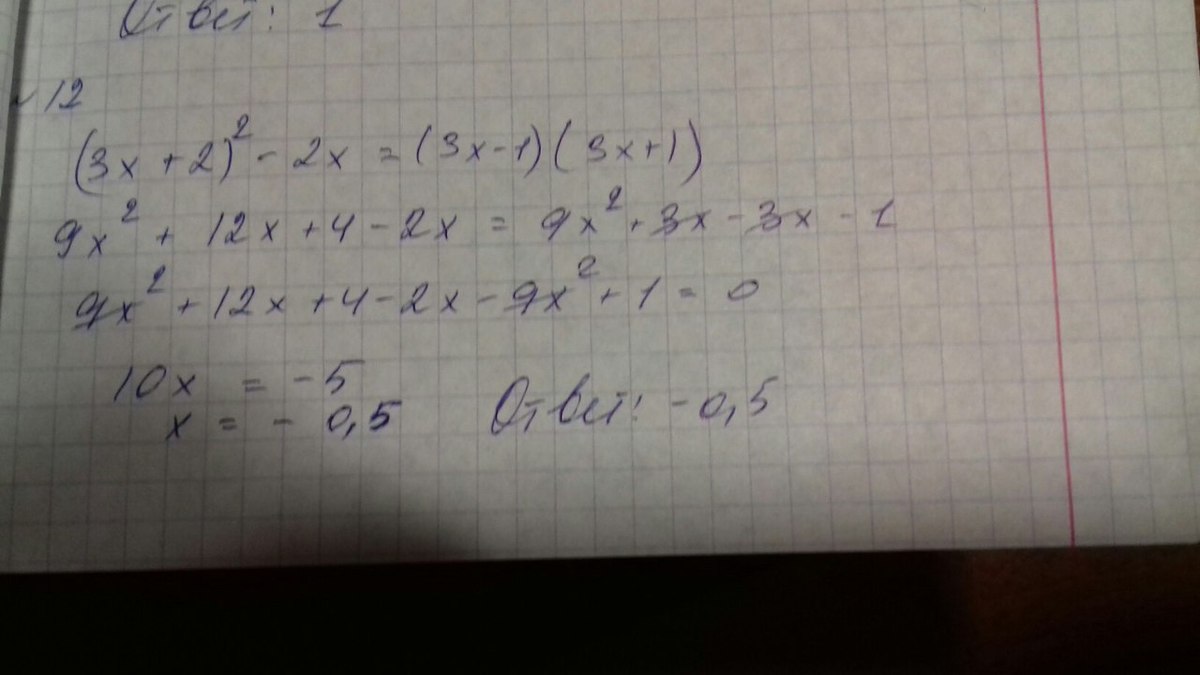 Ответ: 1
№12
(3x+2)² - 2x = (3x-1)(3x+1)
9x² + 12x + 4 - 2x = 9x² + 3x - 3x - 1
9x² + 12x + 4 - 2x - 9x² + 1 = 0
10x = -5
x = - 0,5 Ответ: -0,5